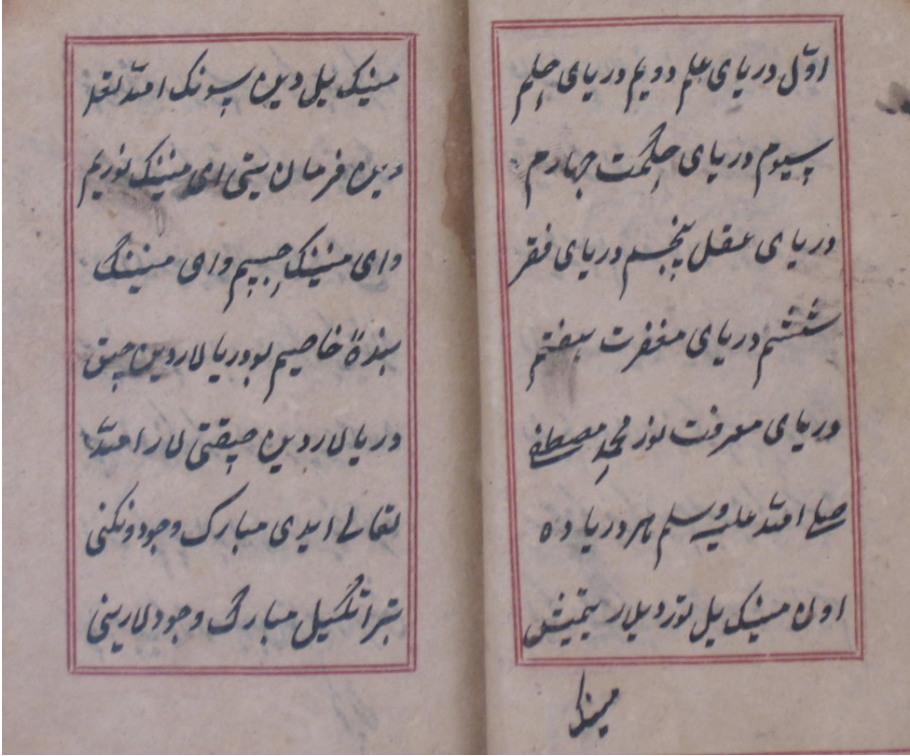 اوّل دریای علم دویم دریای حلم
سیوم دریای حکمت چهارم
دریای عقل پنجم دریای فقر
ششم دریای مغفرت هفتم
دریای معرفت نور محمد مصطفی
صلی الله علیه وسلم هر دریا ده
اون مینک ییل توردیلار یتمیش
مینک
مینک ییل دین سونک الله تعا
دین فرمان یتی ای مینینک نوریم
وای مینینک حبیبم وای مینینگ
بندۀ خاصیم بو دریا لاردین چیق
دریا لاردین چیقتی لار الله
تعالی ایدی مبارک وجودونکنی
تیتراتکیل مبارک وجودلارینی